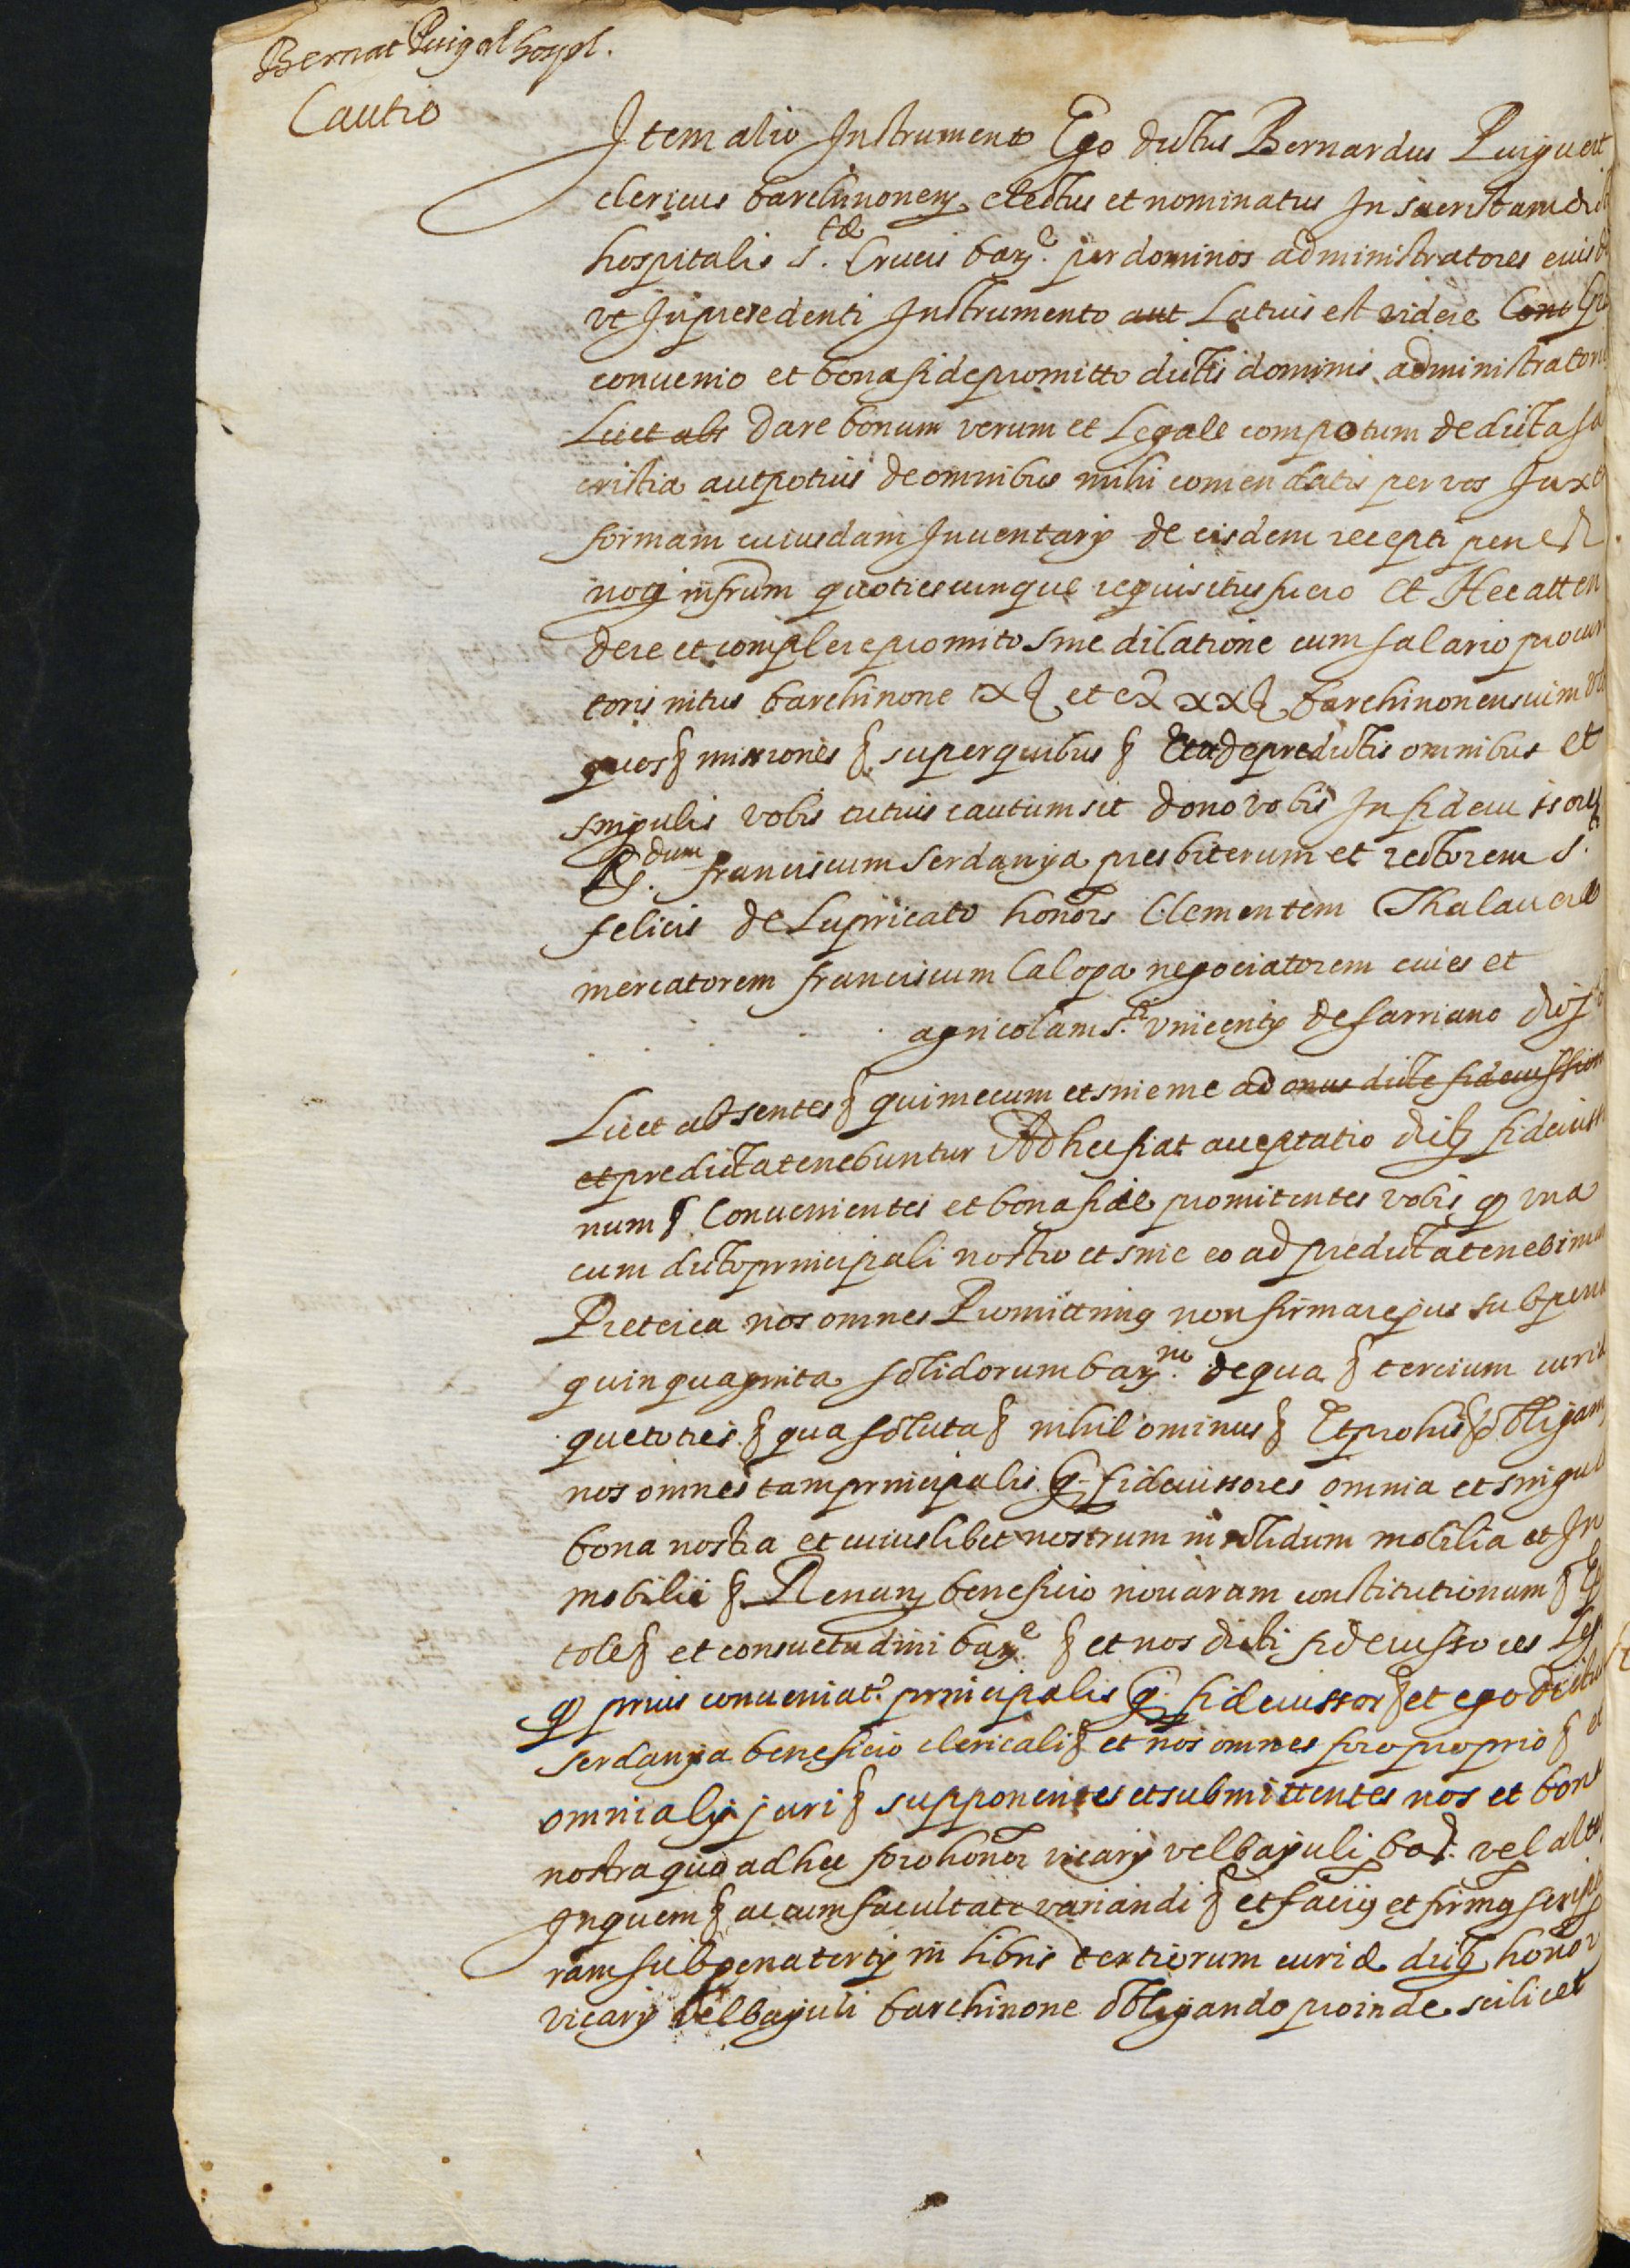 Bernat Puig al hospl.
Cautio
Item alio Instrumento Ego dictus Bernardus Puiguert
clericus barchinonen electus et nominatus In sacristam
hospitalis S.te Crucis bar.e per dominos administratores
vt In precedenti Instrumento aut Latius est videre
conuenio et bona fide promitto dictis dominis administratori
Licet abs Dare bonum verum et Legale compotum de dicta sa
cristia aut potius de omnibus mihi comendatis per vos Juxta
formam cuiusdam Inuentarij de eisdem recepti
quotiescunque requisitus fuero Et Hec atten
dere et complere promito sine dilatione cum salario procur
toris intus barchinone et barchinonensium
quos § missiones § super quibus § Et ad predictis omnibus et
singulis vobis tutius cautum sit Dono vobis In fideiussores
R.dum franciscum Serdanya presbiterum et rectorem S.ti
felicis de Lupricato honors Clementem Thalauera
mercatorem franciscum Calopa negociatorem ciues et
agricolam S.ti vincentij de sarriano
Licet absentes § qui mecum et sine me ad onus dicte fideiussion
et predicta tenebuntur Ad hec fiat acceptatio fideiusso
num § Conuenientes et bona fide promitentes vobis q vna
cum dicto principali nostro et sine eo ad predicta tenebimur
Preterea nos omnes Promittimus non firmare jus sub pena
quinquaginta solidorum bar.ne de qua § tercium curia
que toties § qua soluta § nihilominus § Et pro his § obligam
nos omnes tam principalis q fideiussores omnia et singula
bona nostra et cuiuslibet nostrum in solidum mobilia et In
mobilia § Renun beneficio nouarum constitutionum §
tole § et consuetudini bar.e § et nos dicti fideiussores Legi
q prius conueniat.r principalis q fideiussor § et ego dictus
serdanya beneficio clericali § et nos omnes foro proprio § et
omni alij juri § supponentes et submittentes nos et bona
nostra quo ad hec foro honor vicarij vel bajuli bar. vel alte
In quem § ac cum facultate variandi § et faciq et firmq scriptu
ram sub pena tertij in libris tertiorum curie honor
vicarij vel bajuli barchinone obligando proinde scilicet